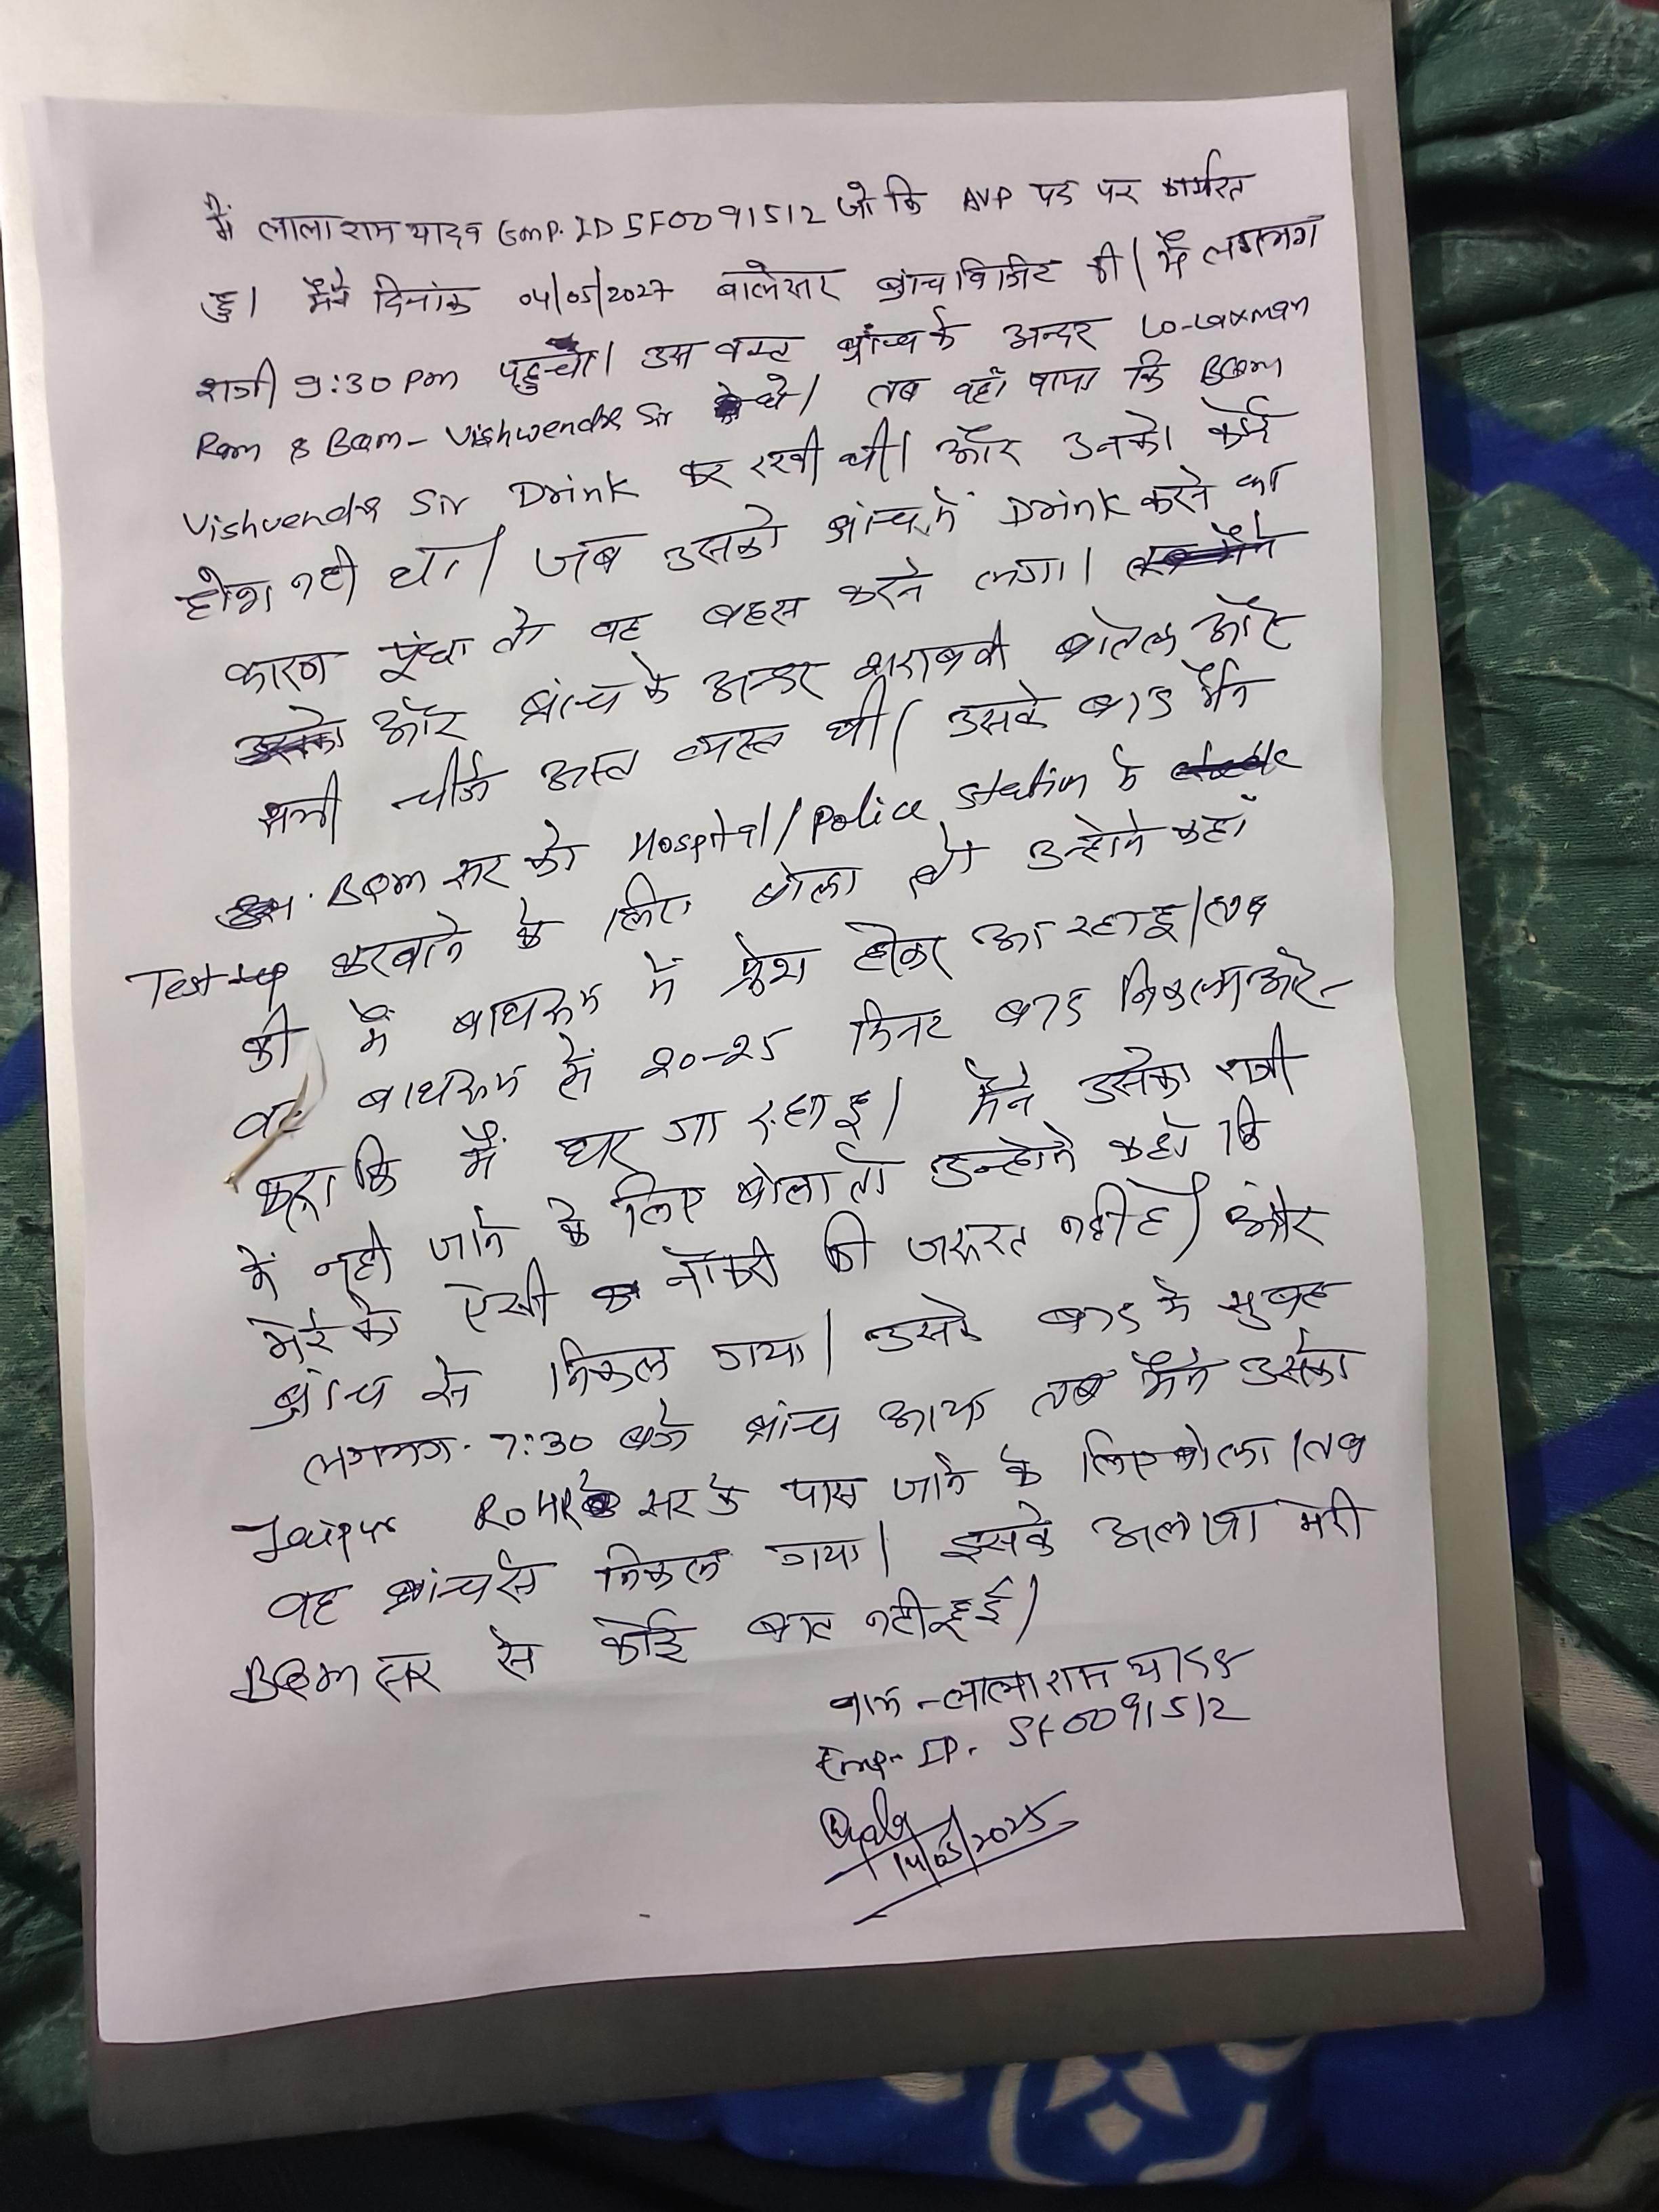 मैं लालाराम यादव Emp. ID SF0091512 जो कि AVP पद पर कार्यरत
हु। मैंने दिनांक 04/05/2027 बालेसर ब्रांच विजिट की। मैं लगभग
रात्री 9:30 Pm पहुचा। उस वक्त ब्रांच के अन्दर LO-Laxman
Ram & BQM- Vishwendra Sir थे। तब वहाँ पाया कि BQM
Vishvendra Sir Drink कर रखी थी। और उनको कोई
होश नही था। जब उसको ब्रांच में Drink करने का
कारण पूंछा तो वह बहस करने लगा।
और ब्रांच के अन्दर शराब की बोतल और
सभी चीजे अस्त व्यस्त थी। उसके बाद मैंने
BQM सर को Hospital/Police Station के
Test करवाने के लिए बोला तो उन्होने कहाँ
की मैं बाथरूम में फ्रेश होकर आ रहा हु। तब
वह बाथरूम से 20-25 मिनट बाद निकला और
कहा कि मैं घर जा रहा हु। मैंने उसको रात्री
में नही जाने के लिए बोला तो उन्होने कहाँ कि
मेरे को ऐसी नौकरी की जरूरत नही है। और
ब्रांच से निकल गया। उसके बाद में सुबह
लगभग 7:30 बजे ब्रांच आया तब मैंने उसको
Jaipur ROHR सर के पास जाने के लिए बोला। तब
वह ब्रांच से निकल गया। इसके अलावा मेरी
BQM सर से कोई बात नही हुई।
नाम - लालाराम यादव
Emp- ID. SF0091512
14/05/2025